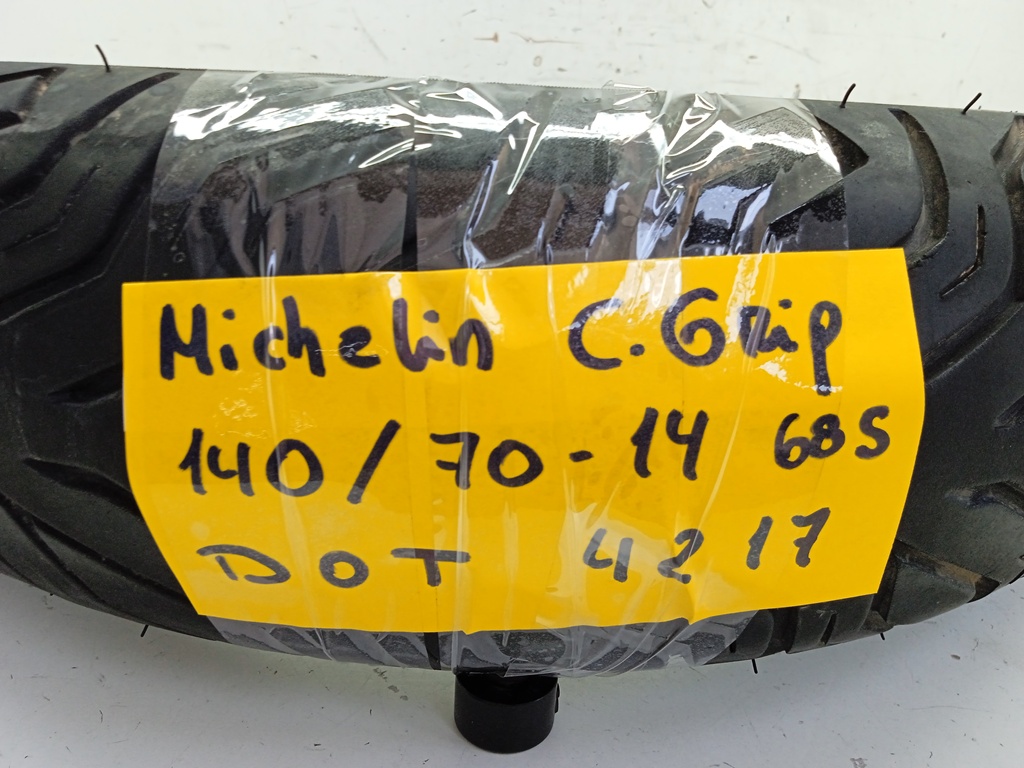 Michelin C.Grip
140/70-14 68S
DOT 4217